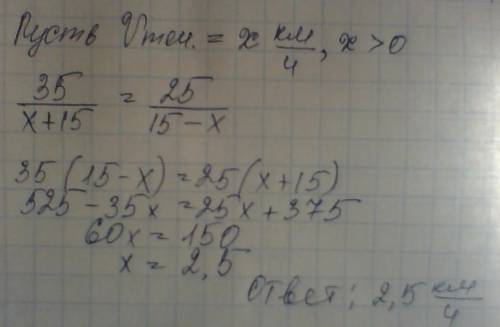 Пусть Vтеч. = x км/ч, x > 0
35/(x+15) = 25/(15-x)
35(15-x) = 25(x+15)
525-35x = 25x+375
60x = 150
x = 2,5
Ответ: 2,5 км/ч